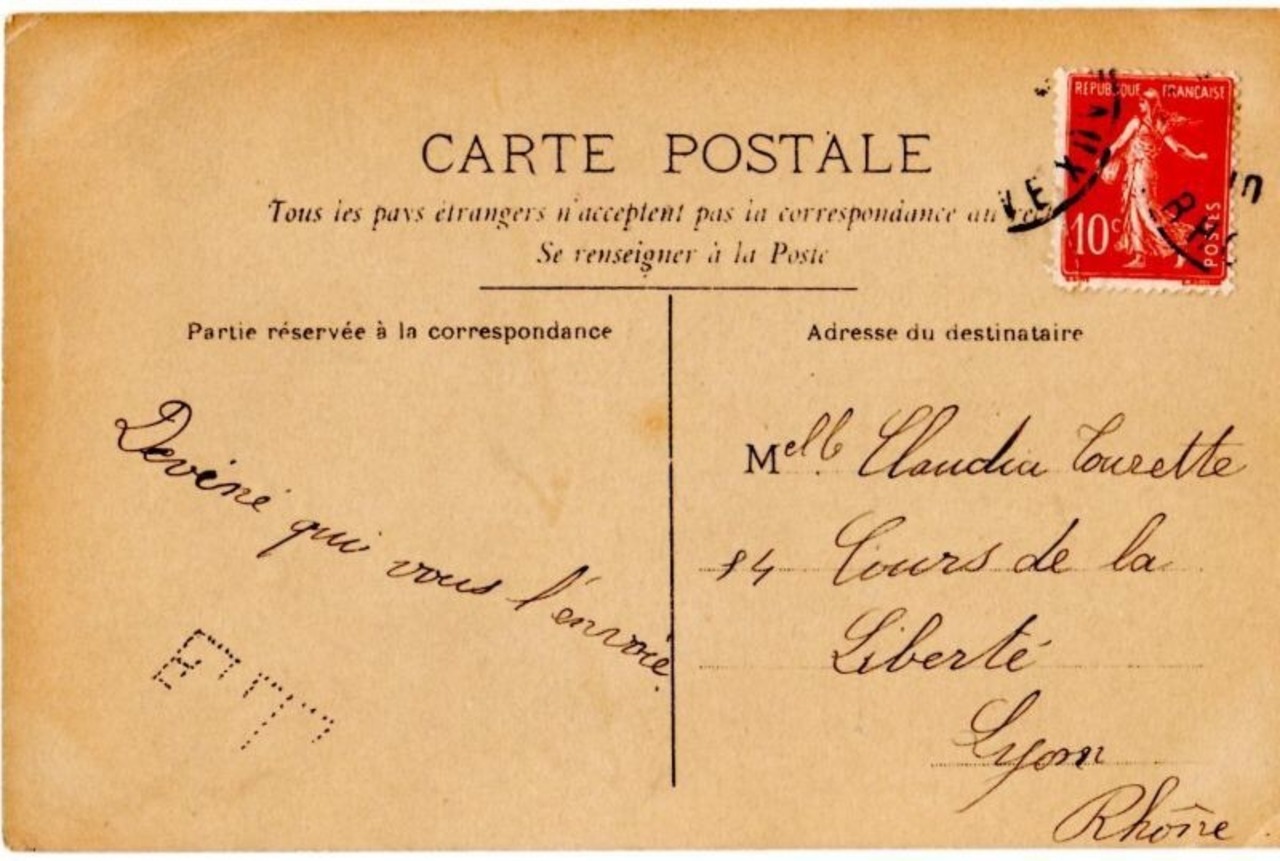 CARTE POSTALE
Tous les pays étrangers n'acceptent pas la correspondance au
Se renseigner à la Poste
REPUBLIQUE FRANÇAISE
10c
POSTES
Partie réservée à la correspondance
Adresse du destinataire
Deviné qui vous l'envoie.
Melle Claudia Tourette
84 Cours de la
Liberté
Lyon
Rhône